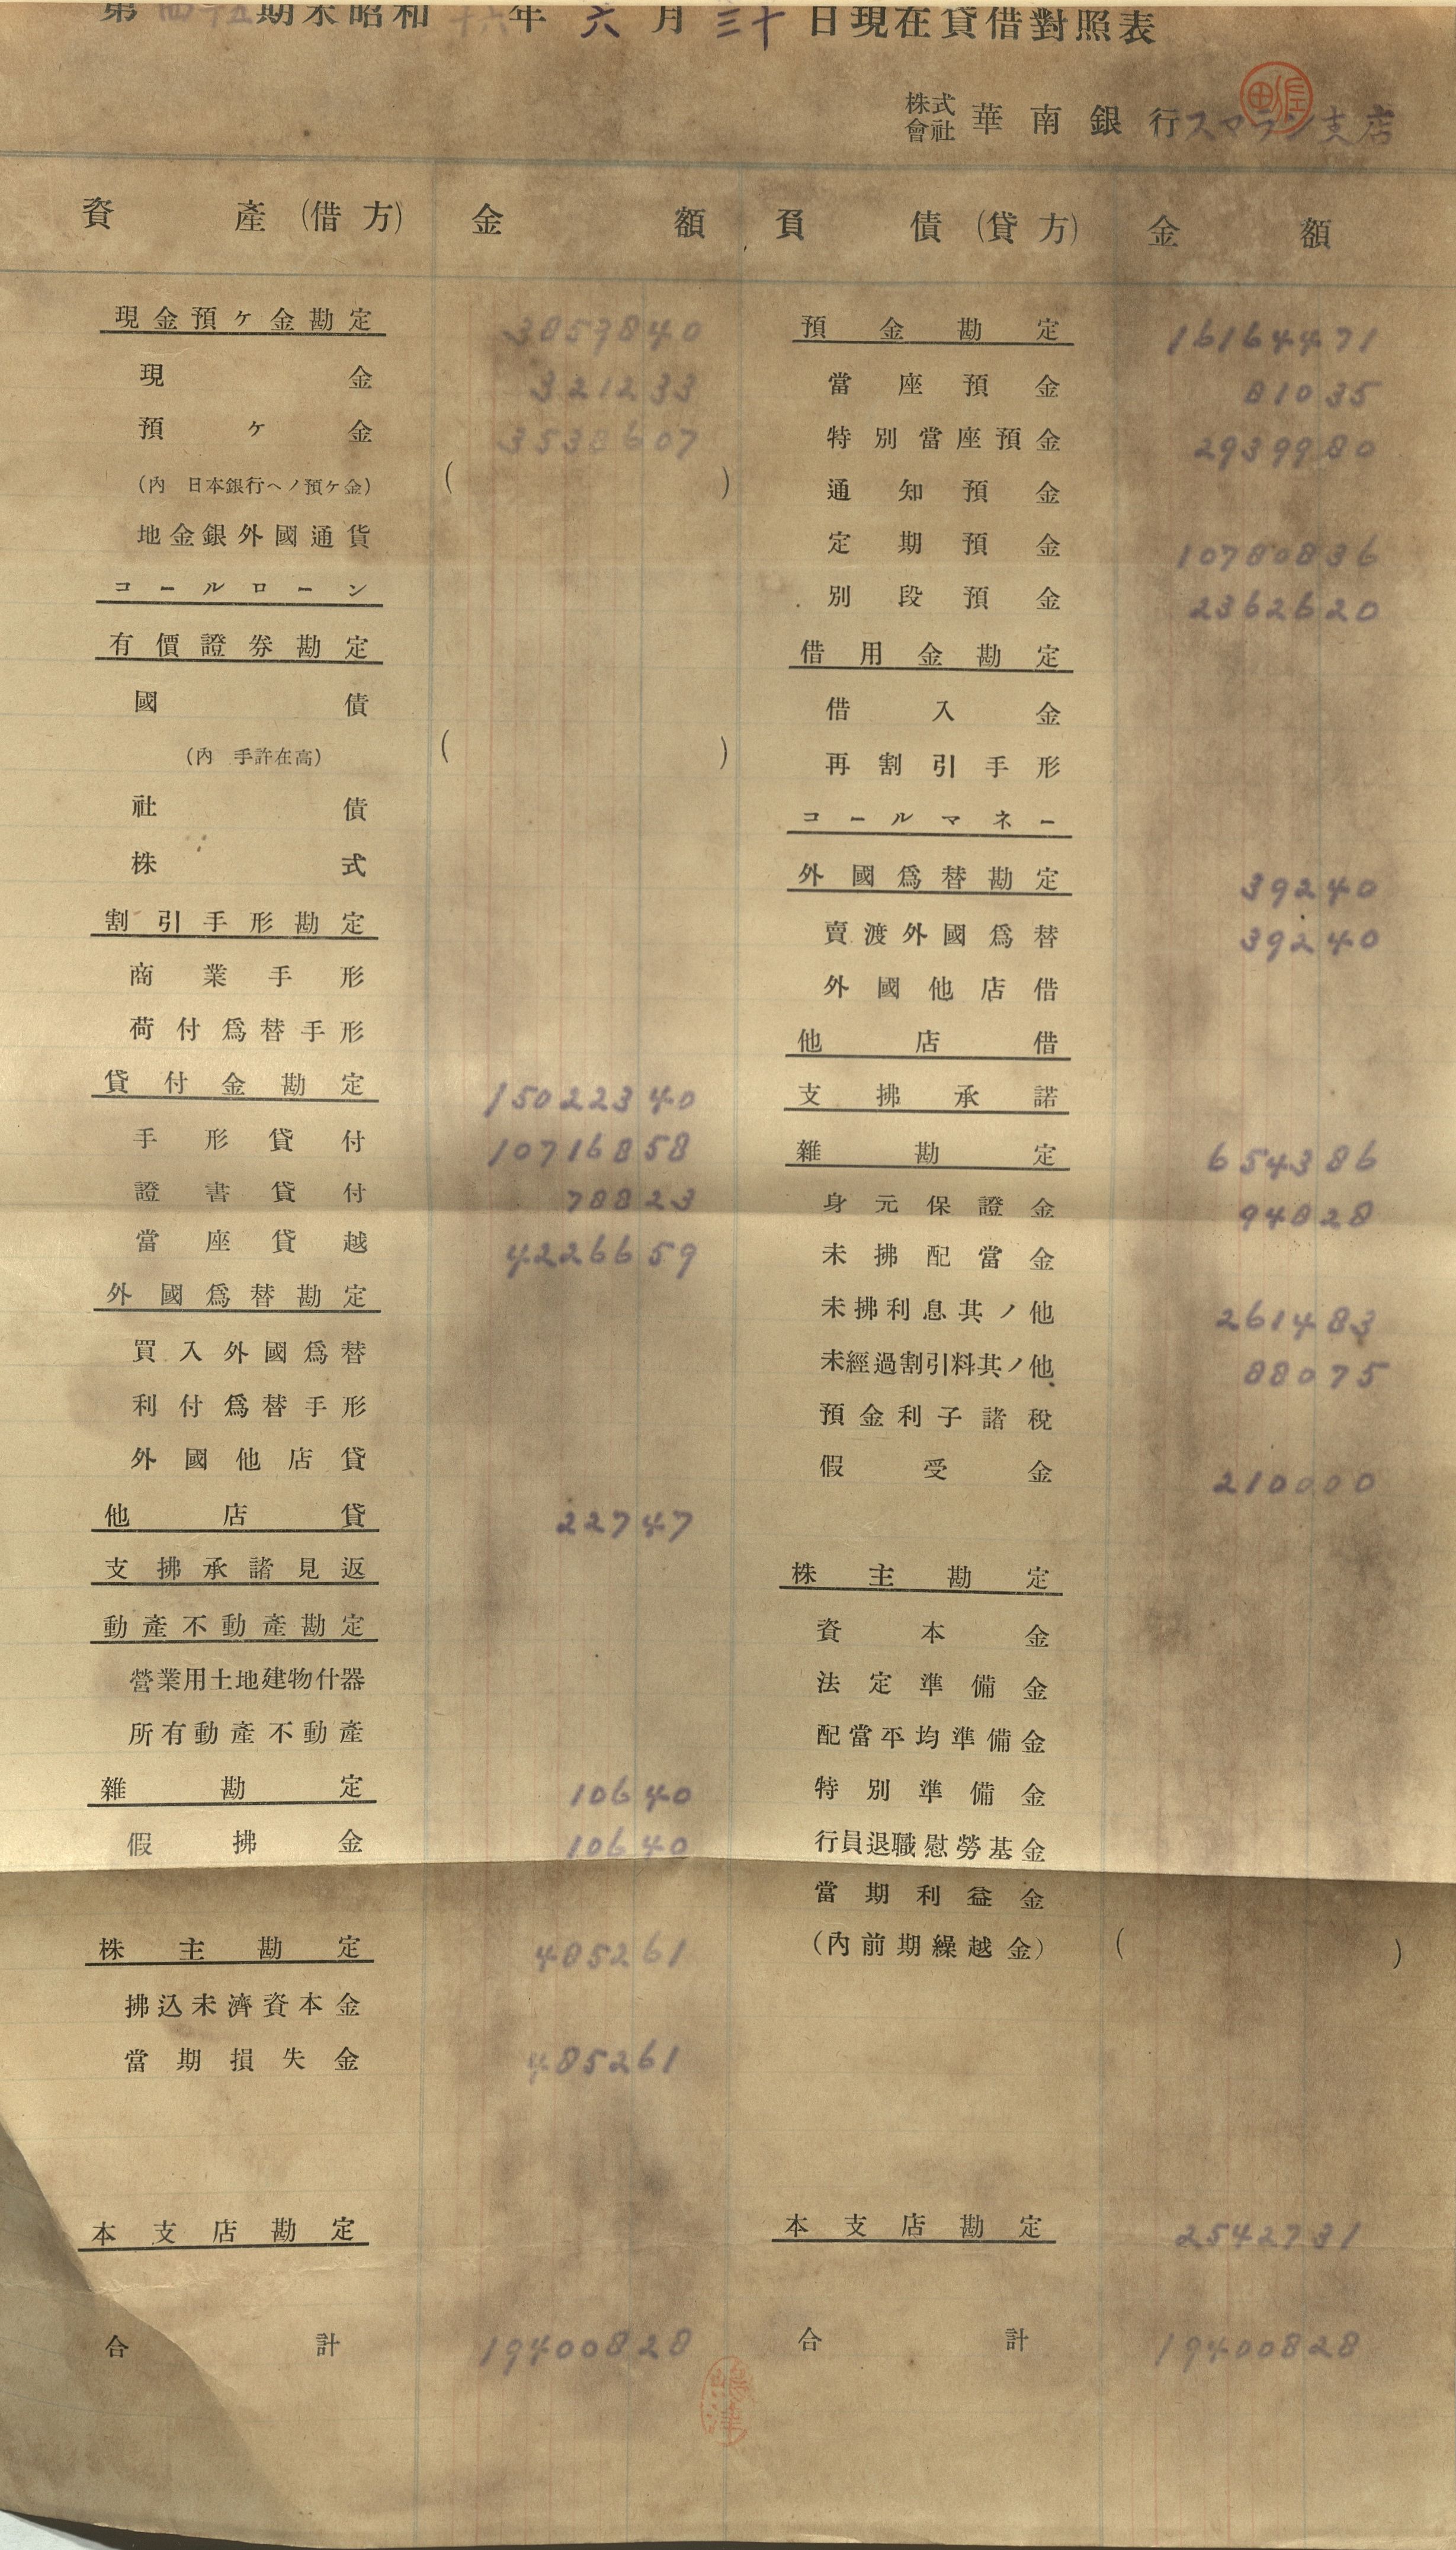 第四十五期末昭和十六年六月三十日現在貸借對照表
株式會社 華南銀行スマラン支店
資產(借方) 金額 負債(貸方) 金額
現金預ヶ金勘定 3859840
現金 321233
預ヶ金 3538607
(內 日本銀行ヘノ預ケ金) ( )
地金銀外國通貨
コールローン
有價證券勘定
國債
(內 手許在高) ( )
社債
株式
割引手形勘定
商業手形
荷付爲替手形
貸付金勘定 15022340
手形貸付 10716858
證書貸付 78823
當座貸越 4226659
外國爲替勘定
買入外國爲替
利付爲替手形
外國他店貸
他店貸 22747
支拂承諸見返
動產不動產勘定
營業用土地建物什器
所有動產不動產
雜勘定 10640
假拂金 10640
株主勘定 485261
拂込未濟資本金
當期損失金 485261
本支店勘定
合計 19400828
預金勘定 16164471
當座預金 81035
特別當座預金 2939980
通知預金
定期預金 10780836
別段預金 2362620
借用金勘定
借入金
再割引手形
コールマネー
外國爲替勘定 39240
賣渡外國爲替 39240
外國他店借
他店借
支拂承諾
雜勘定 654386
身元保證金 94828
未拂配當金
未拂利息其ノ他 261483
未經過割引料其ノ他 88075
預金利子諸稅
假受金 210000
株主勘定
資本金
法定準備金
配當平均準備金
特別準備金
行員退職慰勞基金
當期利益金
(內前期繰越金) ( )
本支店勘定 2542731
合計 19400828